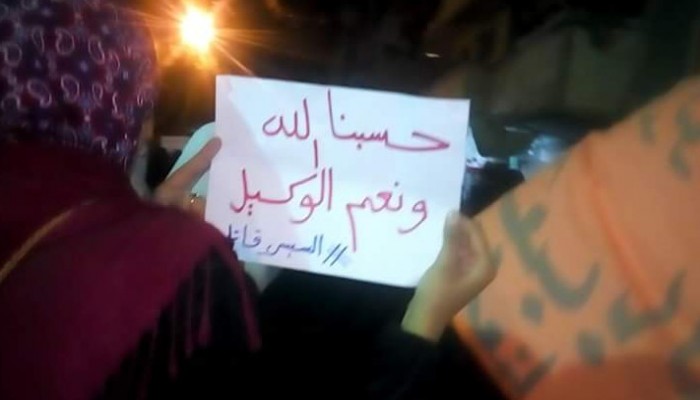 حسبنا الله
ونعم الوكيل
//السيس قاتل